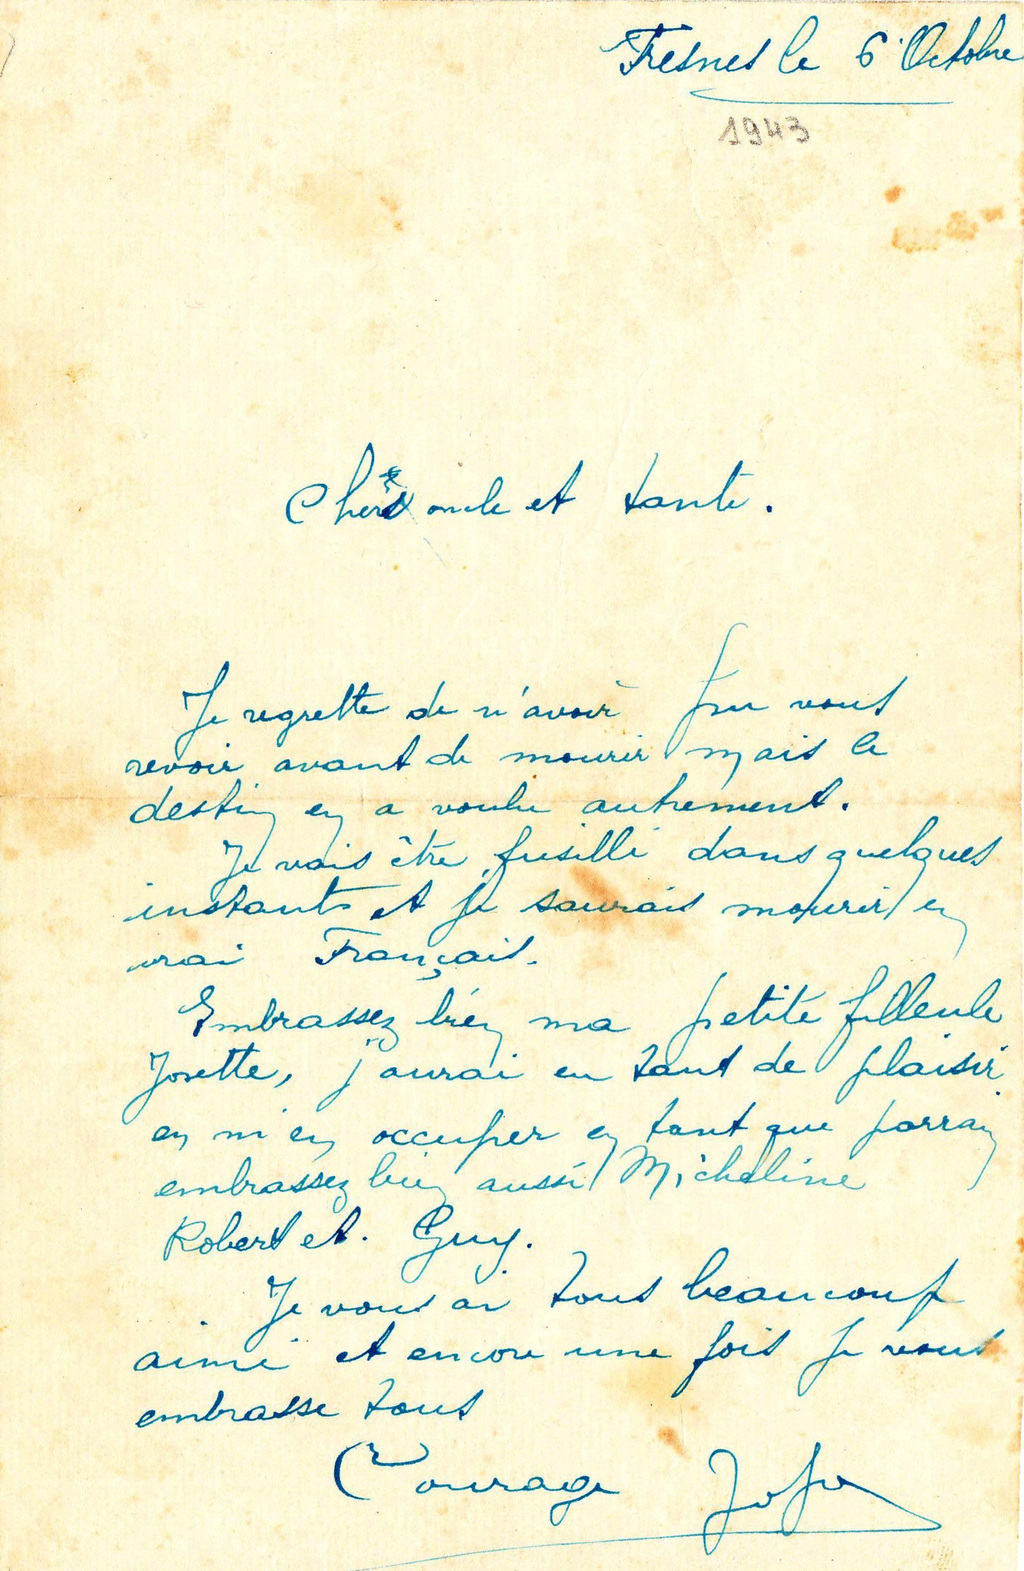 Fresnes le 6 Octobre
1943
Chers oncle et tante.
Je regrette de n'avoir pu vous
revoir avant de mourir mais le
destin en a voulu autrement.
Je vais être fusillé dans quelques
instants et je saurais mourir en
vrai Français.
Embrassez bien ma petite filleule
Josette, j'aurai eu tant de plaisir
en m'en occuper en tant que parrain
embrassez bien aussi Micheline
Robert et. Guy.
Je vous ai tous beaucoup
aimé et encore une fois je vous
embrasse tous
Courage Jojo